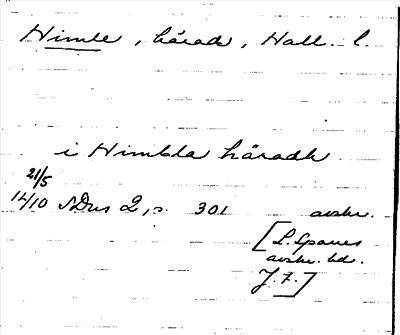 Himle, härad, Hall. l.
i Himbla häradh
21/5
1410 SDns 2, s. 301 avskr.
[L. Sparres
avskr. bd.
J. F.]